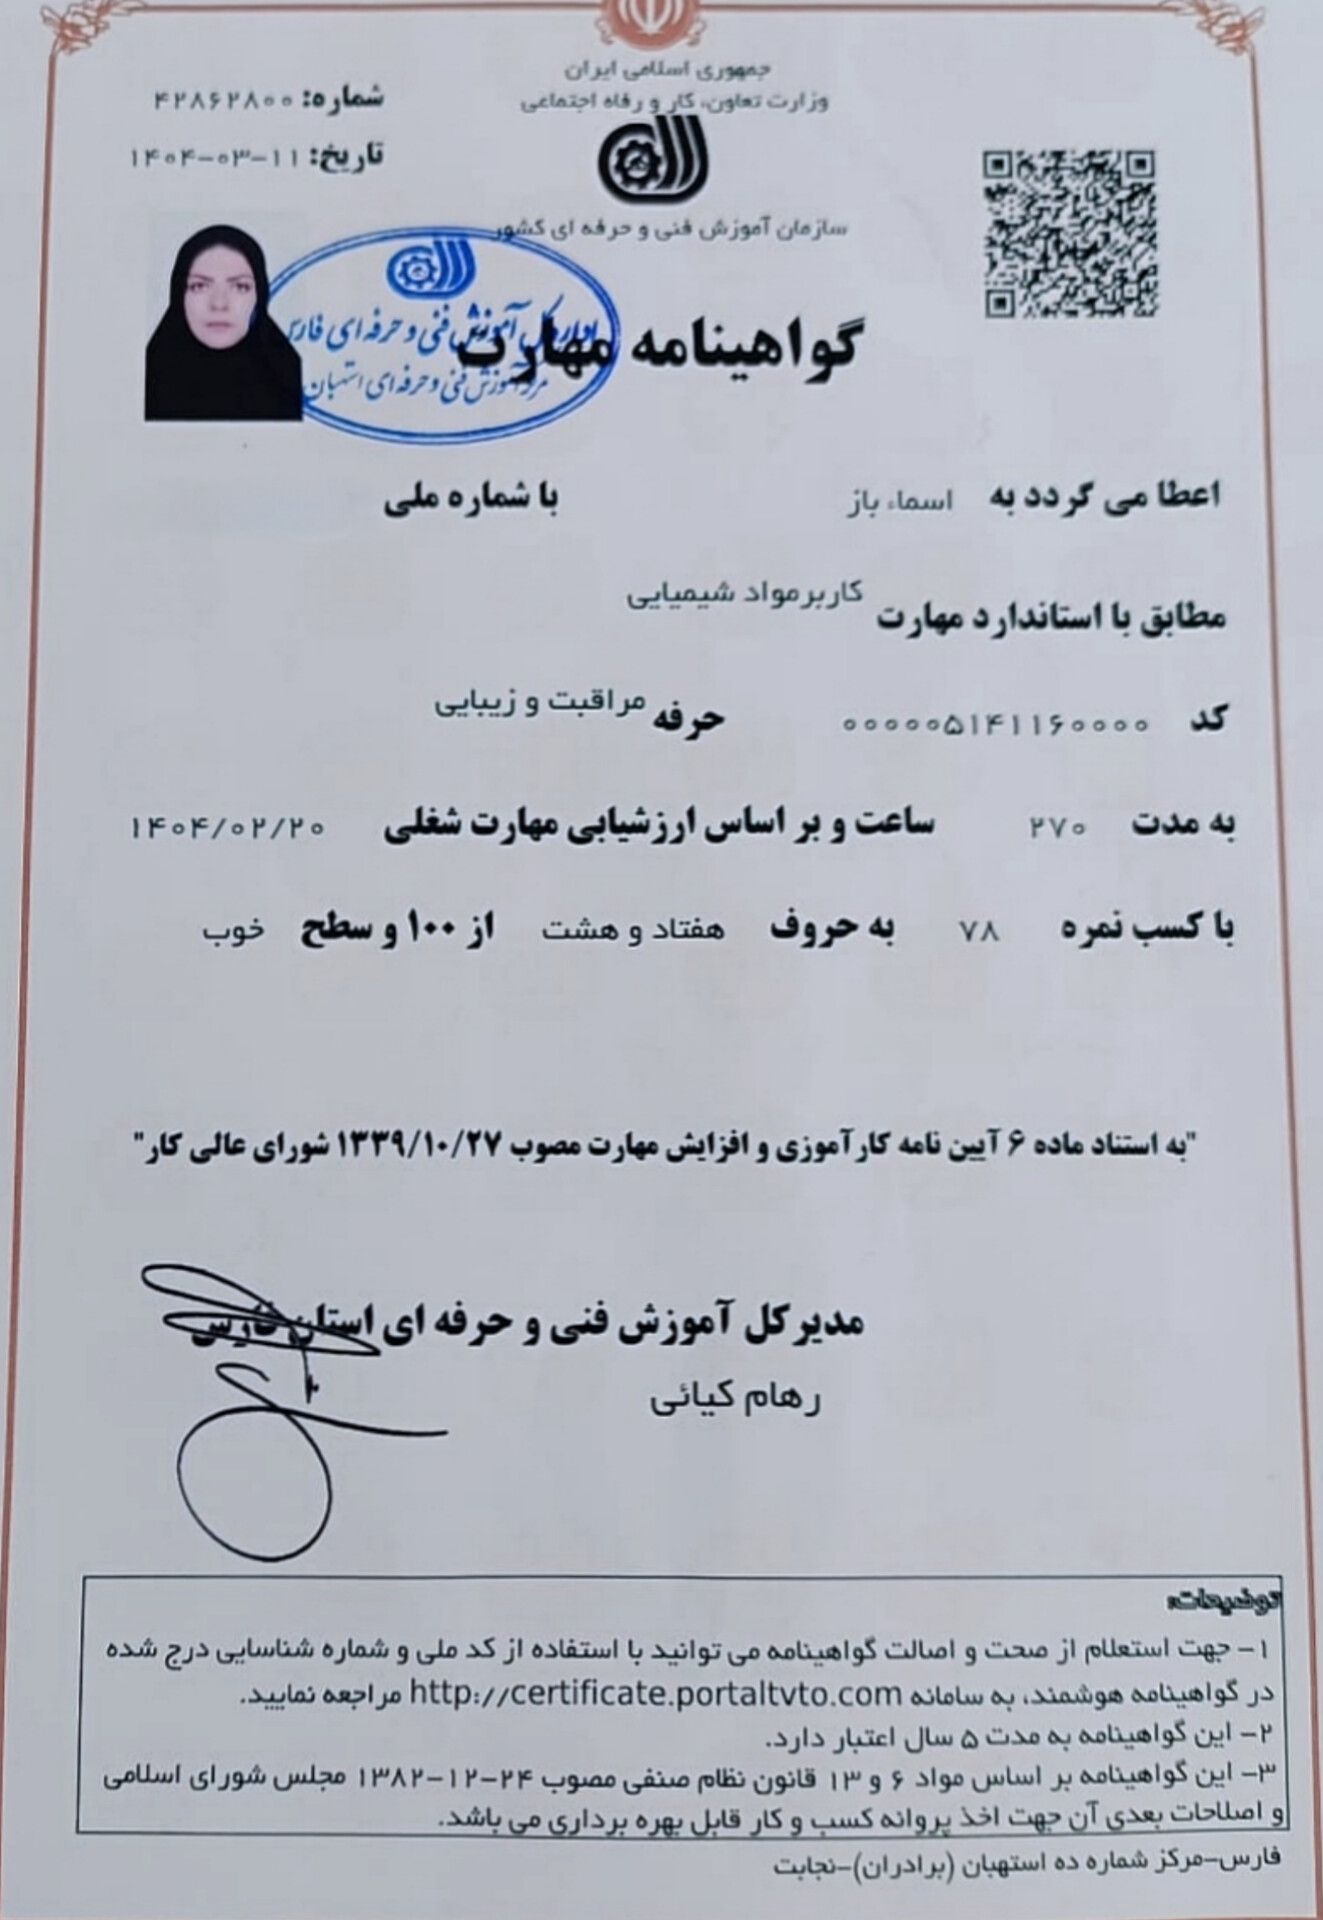 جمهوری اسلامی ایران
وزارت تعاون، کار و رفاه اجتماعی
شماره: ۴۲۸۶۲۸۰۰
تاریخ: ۱۴۰۴-۰۳-۱۱
سازمان آموزش فنی و حرفه ای کشور
اداره کل آموزش فنی و حرفه ای فارس
مرکز آموزش فنی و حرفه ای استهبان
گواهینامه مهارت
اعطا می گردد به اسماء باز با شماره ملی
مطابق با استاندارد مهارت کاربرمواد شیمیایی
کد ۰۰۰۰۰۵۱۴۱۱۶۰۰۰۰ حرفه مراقبت و زیبایی
به مدت ۲۷۰ ساعت و بر اساس ارزشیابی مهارت شغلی ۱۴۰۴/۰۲/۲۰
با کسب نمره ۷۸ به حروف هفتاد و هشت از ۱۰۰ و سطح خوب
"به استناد ماده ۶ آیین نامه کارآموزی و افزایش مهارت مصوب ۱۳۳۹/۱۰/۲۷ شورای عالی کار"
مدیرکل آموزش فنی و حرفه ای استان فارس
رهام کیائی
توضیحات:
۱- جهت استعلام از صحت و اصالت گواهینامه می توانید با استفاده از کد ملی و شماره شناسایی درج شده
در گواهینامه هوشمند، به سامانه http://certificate.portaltvto.com مراجعه نمایید.
۲- این گواهینامه به مدت ۵ سال اعتبار دارد.
۳- این گواهینامه بر اساس مواد ۶ و ۱۳ قانون نظام صنفی مصوب ۲۴-۱۲-۱۳۸۲ مجلس شورای اسلامی
و اصلاحات بعدی آن جهت اخذ پروانه کسب و کار قابل بهره برداری می باشد.
فارس-مرکز شماره ده استهبان (برادران)-نجابت